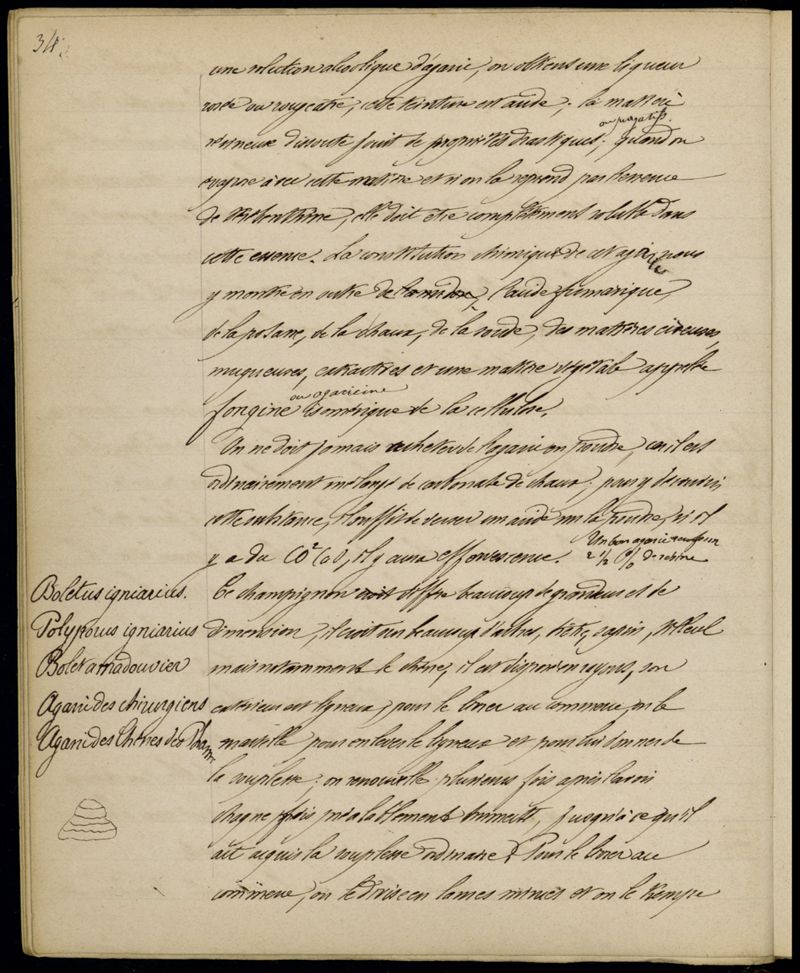 34
une solution alcoolique d'agaric, on obtiens une liqueur
rosée ou rougeatre, cette teinture est acide; la matière
résineuse dissoute jouit de propriétés drastiques; ou purgatifs. quand on
évapore à sec cette matière et si on la reprend par l'essence
de thérébenthine, elle doit être complètement soluble dans
cette essence. La constitution chimique de cet agaric nous
y montre en outre de l'amidon, l'acide fumarique,
de la potasse, de la chaux, de la soude, des matières cireuses,
muqueuses, extractives et une matière végétale appelée
fongine ou agaricine isomérique de la cellulose.
On ne doit jamais acheter de l'agaric en poudre, car il est
ordinairement mélangé de carbonate de chaux; pour y découvrir
cette substance, il suffit de verser un acide sur la poudre, si il
y a du CO² CaO, il y aura effervescence. Un bon agaric
2 ½ % de résine
Boletus igniarius.
Polyporus igniarius
Bolet amadouvier
Agaric des chirurgiens
Agaric des Chênes des Pharm
Ce champignon croit diffère beaucoup de grandeur et de
dimension, il croit sur beaucoup d'arbres, hêtre, sapin, tilleul
mais notamment le chêne, il est disposé en rayons, son
extérieur est ligneux, pour le livrer au commerce, on le
mouille pour enlever le ligneux et pour lui donner de
la souplesse; on renouvelle plusieurs fois après l'avoir
chaque fois préalablement humecté, jusqu'à ce qu'il
ait acquis la souplesse ordinaire. Pour le livrer au
commerce, on le divise en lames minces et on le trempe